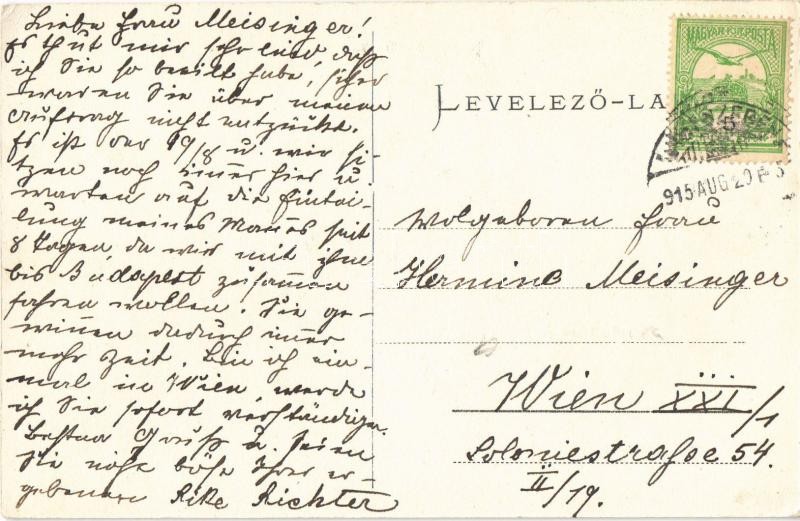 Liebe Frau Meisinger!
Es thut mir sehr leid, daß
ich Sie so beeilt habe, sicher
waren Sie über meinen
Auftrag nicht entzückt.
Es ist der 19/8 u. wir si-
tzen noch immer hier u.
warten auf die Eintei-
lung meines Mannes seit
8 Tagen, da wir mit ihm
bis Budapest zusammen
fahren wollen. Sie ge-
winnen dadurch immer
mehr Zeit. Bin ich ein-
mal in Wien, werde
ich Sie sofort verständigen.
Besten Gruß u. seien
Sie nicht böse Ihrer er-
gebenen Rike Richter
MAGYAR KIR. POSTA
LEVELEZŐ-LA
SZEGED
915 AUG 20
Wolgeboren Frau
Hermine Meisinger
Wien XXI/1
Koloniestraße 54.
II/19.